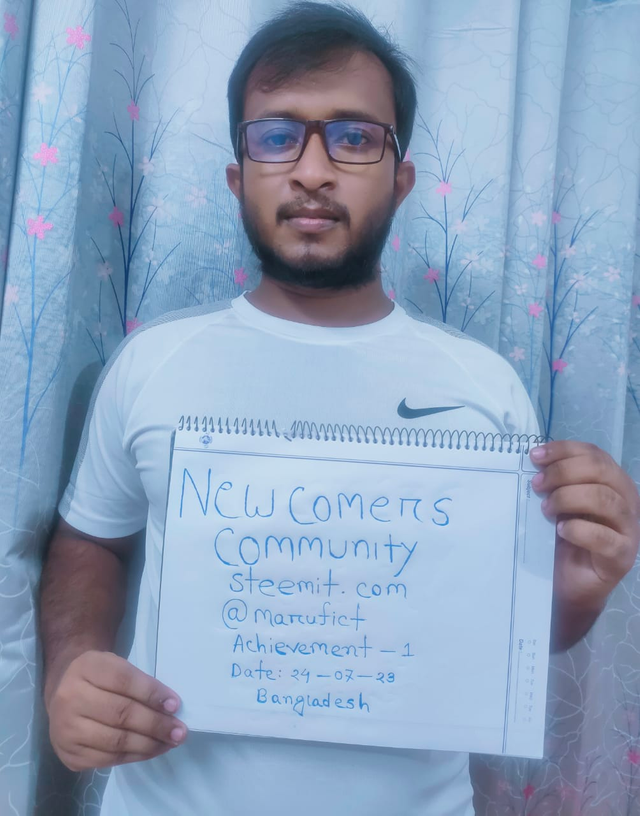 New comers
Community
Steemit. com
@marufict
Achievement - 1
Date: 24 - 07 - 23
Bangladesh